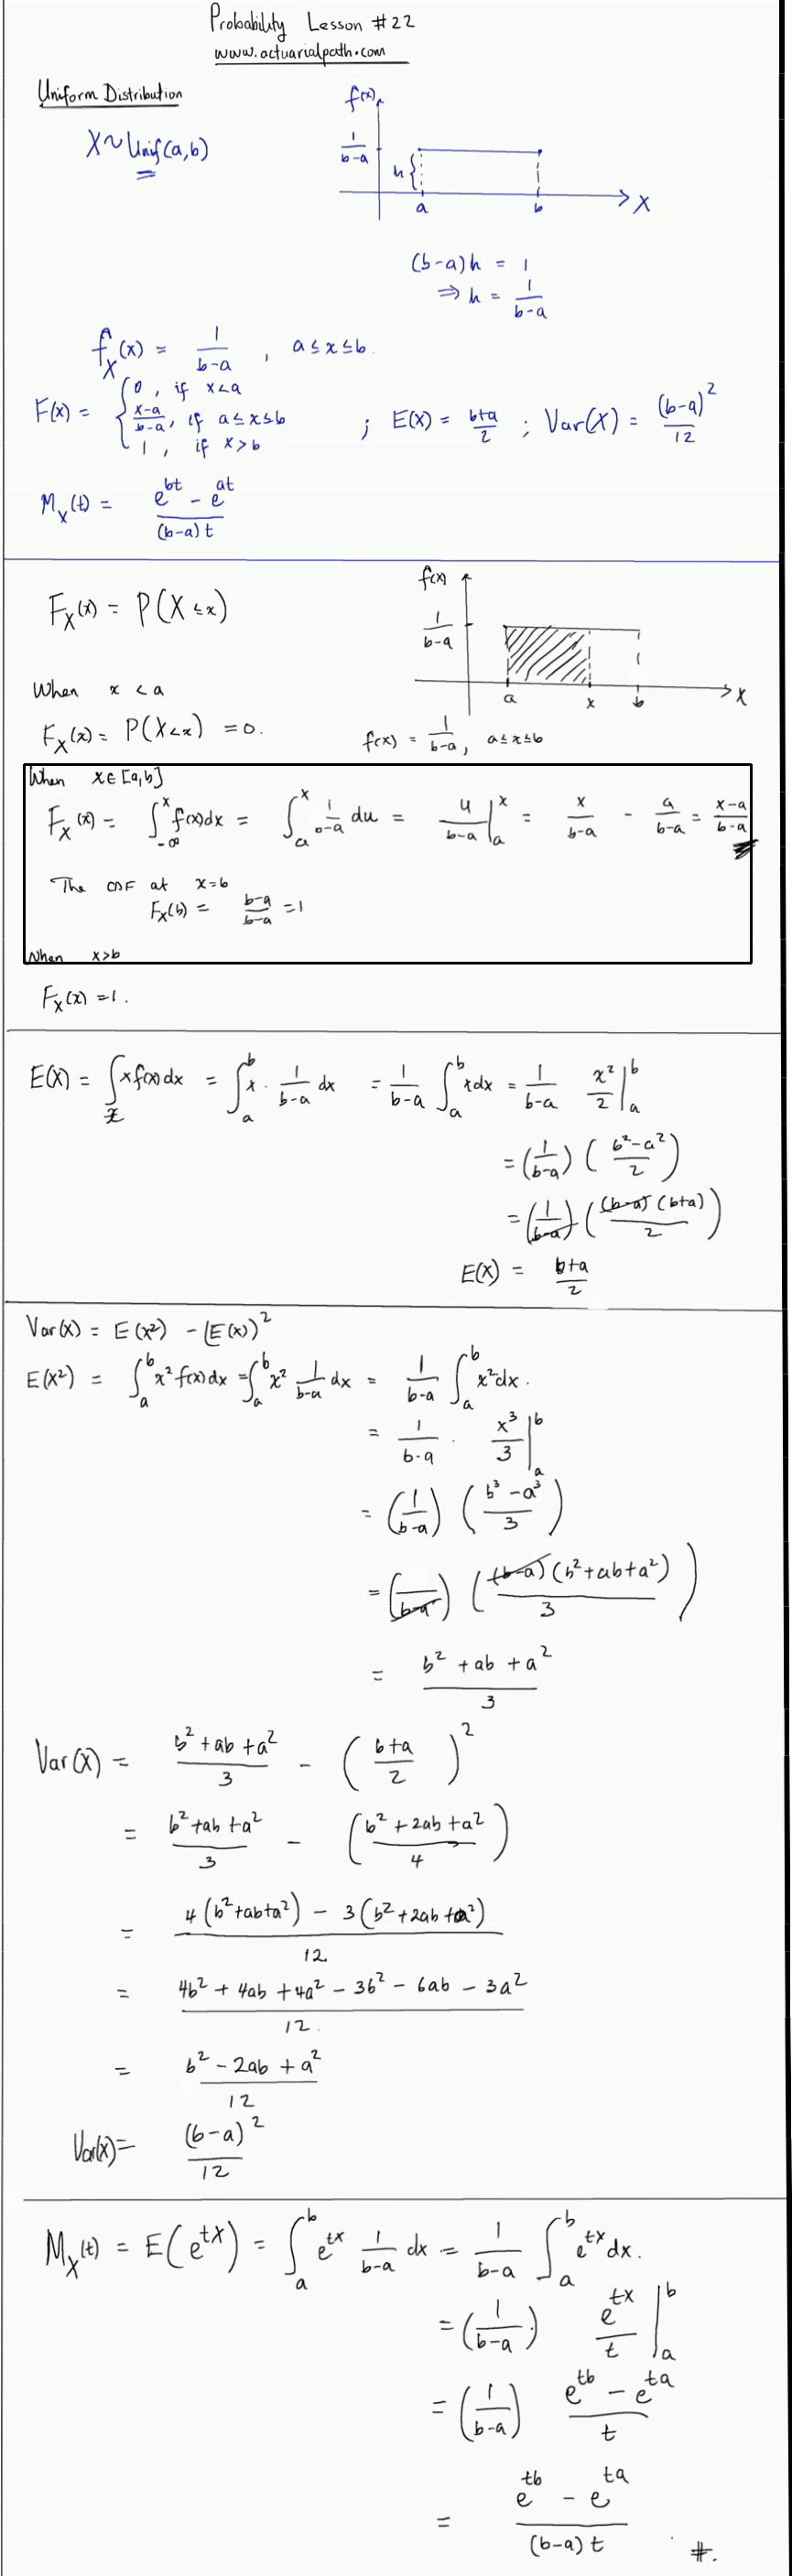 Probability Lesson #22
www.actuarialpath.com
Uniform Distribution
X~Unif(a,b)
f(x)
1/(b-a)
h{
a b X
(b-a)h = 1
⇒ h = 1/(b-a)
f_X(x) = 1/(b-a) , a≤x≤b.
F(x) = { 0, if x<a
(x-a)/(b-a), if a≤x≤b
1, if x>b
; E(X) = (b+a)/2 ; Var(X) = (b-a)²/12
M_X(t) = (e^{bt} - e^{at})/((b-a)t)
F_X(x) = P(X≤x)
f(x)
1/(b-a)
a x b X
When x<a
F_X(x) = P(X<x) = 0.
f(x) = 1/(b-a), a≤x≤b
When x∈[a,b]
F_X(x) = ∫_{-∞}^{x} f(x)dx = ∫_a^x 1/(b-a) du = u/(b-a) |_a^x = x/(b-a) - a/(b-a) = (x-a)/(b-a)
The CDF at x=b
F_X(b) = (b-a)/(b-a) = 1
When x>b
F_X(x) = 1.
E(X) = ∫_x x f(x) dx = ∫_a^b x · 1/(b-a) dx = 1/(b-a) ∫_a^b x dx = 1/(b-a) x²/2 |_a^b
= (1/(b-a)) ((b²-a²)/2)
= (1/(b-a)) ((b-a)(b+a)/2)
E(X) = (b+a)/2
Var(X) = E(X²) - (E(X))²
E(X²) = ∫_a^b x² f(x) dx = ∫_a^b x² 1/(b-a) dx = 1/(b-a) ∫_a^b x² dx.
= 1/(b-a) · x³/3 |_a^b
= (1/(b-a)) ((b³-a³)/3)
= (1/(b-a)) ((b-a)(b²+ab+a²)/3)
= (b²+ab+a²)/3
Var(X) = (b²+ab+a²)/3 - ((b+a)/2)²
= (b²+ab+a²)/3 - ((b²+2ab+a²)/4)
= (4(b²+ab+a²) - 3(b²+2ab+a²))/12
= (4b²+4ab+4a²-3b²-6ab-3a²)/12.
= (b²-2ab+a²)/12
Var(X) = (b-a)²/12
M_X(t) = E(e^{tX}) = ∫_a^b e^{tx} 1/(b-a) dx = 1/(b-a) ∫_a^b e^{tx} dx.
= (1/(b-a)) e^{tx}/t |_a^b
= (1/(b-a)) (e^{tb} - e^{ta})/t
= (e^{tb} - e^{ta})/((b-a)t) #.